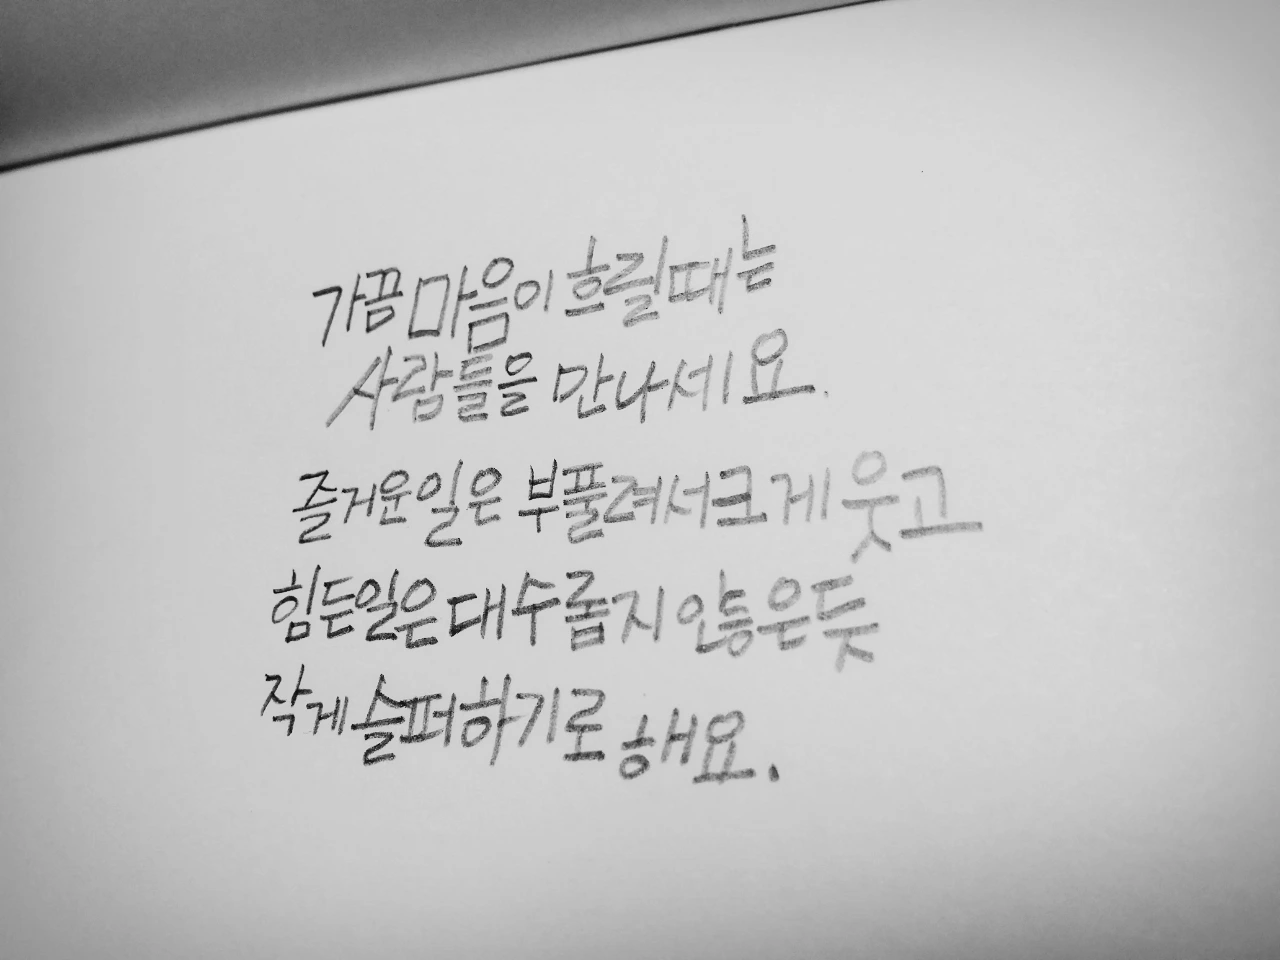 가끔 마음이 흐릴때는
사람들을 만나세요.
즐거운일은 부풀려서 크게 웃고
힘든일은 대수롭지 않은듯
작게 슬퍼하기로 해요.